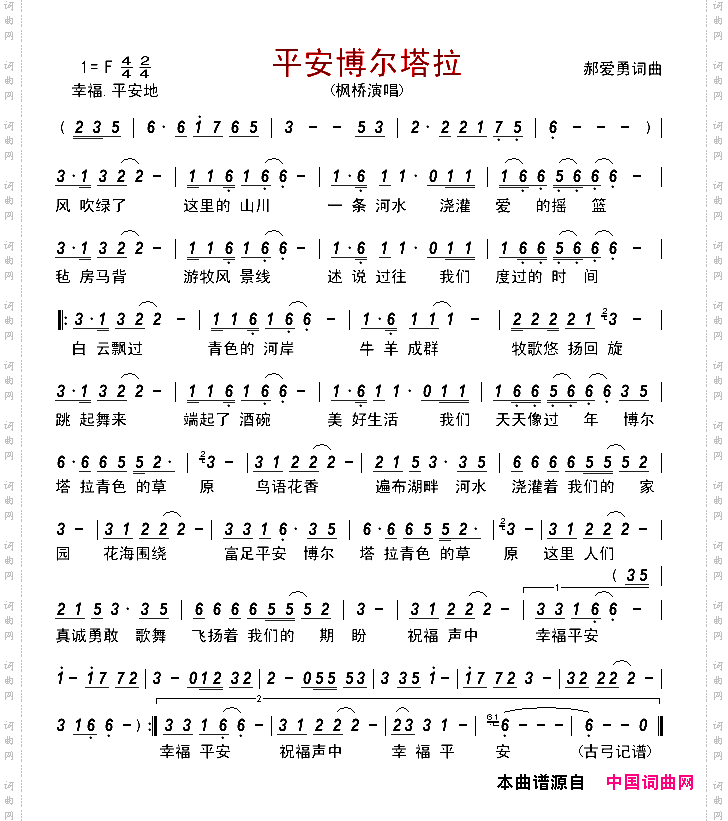 平安博尔塔拉
1=F 4/4 2/4
郝爱勇词曲
幸福.平安地
(枫桥演唱)
( 2 3 5 | 6· 6 1 7 6 5 | 3 - - 5 3 | 2· 2 2 1 7 5 | 6 - - - ) |
3· 1 3 2 2 - | 1 1 6 1 6 6 | 1· 6 1 1· 0 1 1 | 1 6 6 5 6 6 6 - |
风 吹绿了 这里的 山川 一 条 河水 浇灌 爱 的摇 篮
3· 1 3 2 2 - | 1 1 6 1 6 6 - | 1· 6 1 1· 0 1 1 | 1 6 6 5 6 6 6 - |
毡 房马背 游牧风 景线 述 说 过往 我们 度过的 时 间
3· 1 3 2 2 - | 1 1 6 1 6 6 - | 1· 6 1 1 1 - | 2 2 2 2 1 3 - |
白 云飘过 青色的 河岸 牛 羊 成群 牧歌悠 扬回 旋
3· 1 3 2 2 - | 1 1 6 1 6 6 - | 1· 6 1 1· 0 1 1 | 1 6 6 5 6 6 6 3 5 |
跳 起舞来 端起了 酒碗 美 好生活 我们 天天像过 年 博尔
6· 6 6 5 5 5 2· | 3 - | 3 1 2 2 2 - | 2 1 5 3· 3 5 | 6 6 6 6 5 5 5 2 |
塔 拉青色 的草 原 鸟语花香 遍布湖畔 河水 浇灌着 我们的 家
3 - | 3 1 2 2 2 - | 3 3 1 6· 3 5 | 6· 6 6 5 5 5 2· | 3 - |
园 花海围绕 富足平安 博尔 塔 拉青色 的草 原 这里 人们
( 3 5 |
1
2 1 5 3· 3 5 | 6 6 6 6 5 5 5 2 | 3 - | 3 1 2 2 2 - | 3 3 1 6 6 - |
真诚勇敢 歌舞 飞扬着 我们的 期 盼 祝福 声中 幸福平安
1 - 1 7 7 2 | 3 - 0 1 2 3 2 | 2 - 0 5 5 3 | 3 3 5 1 6 - | 1 7 7 2 3 - |
2
3 1 6 6 - ) | 3 3 1 6 6 - | 3 1 2 2 2 - | 2 3 3 1 - | 6 - - | 6 - - 0 |
幸福 平安 祝福声中 幸 福 平 安 (古弓记谱)
本曲谱源自 中国词曲网
词曲网